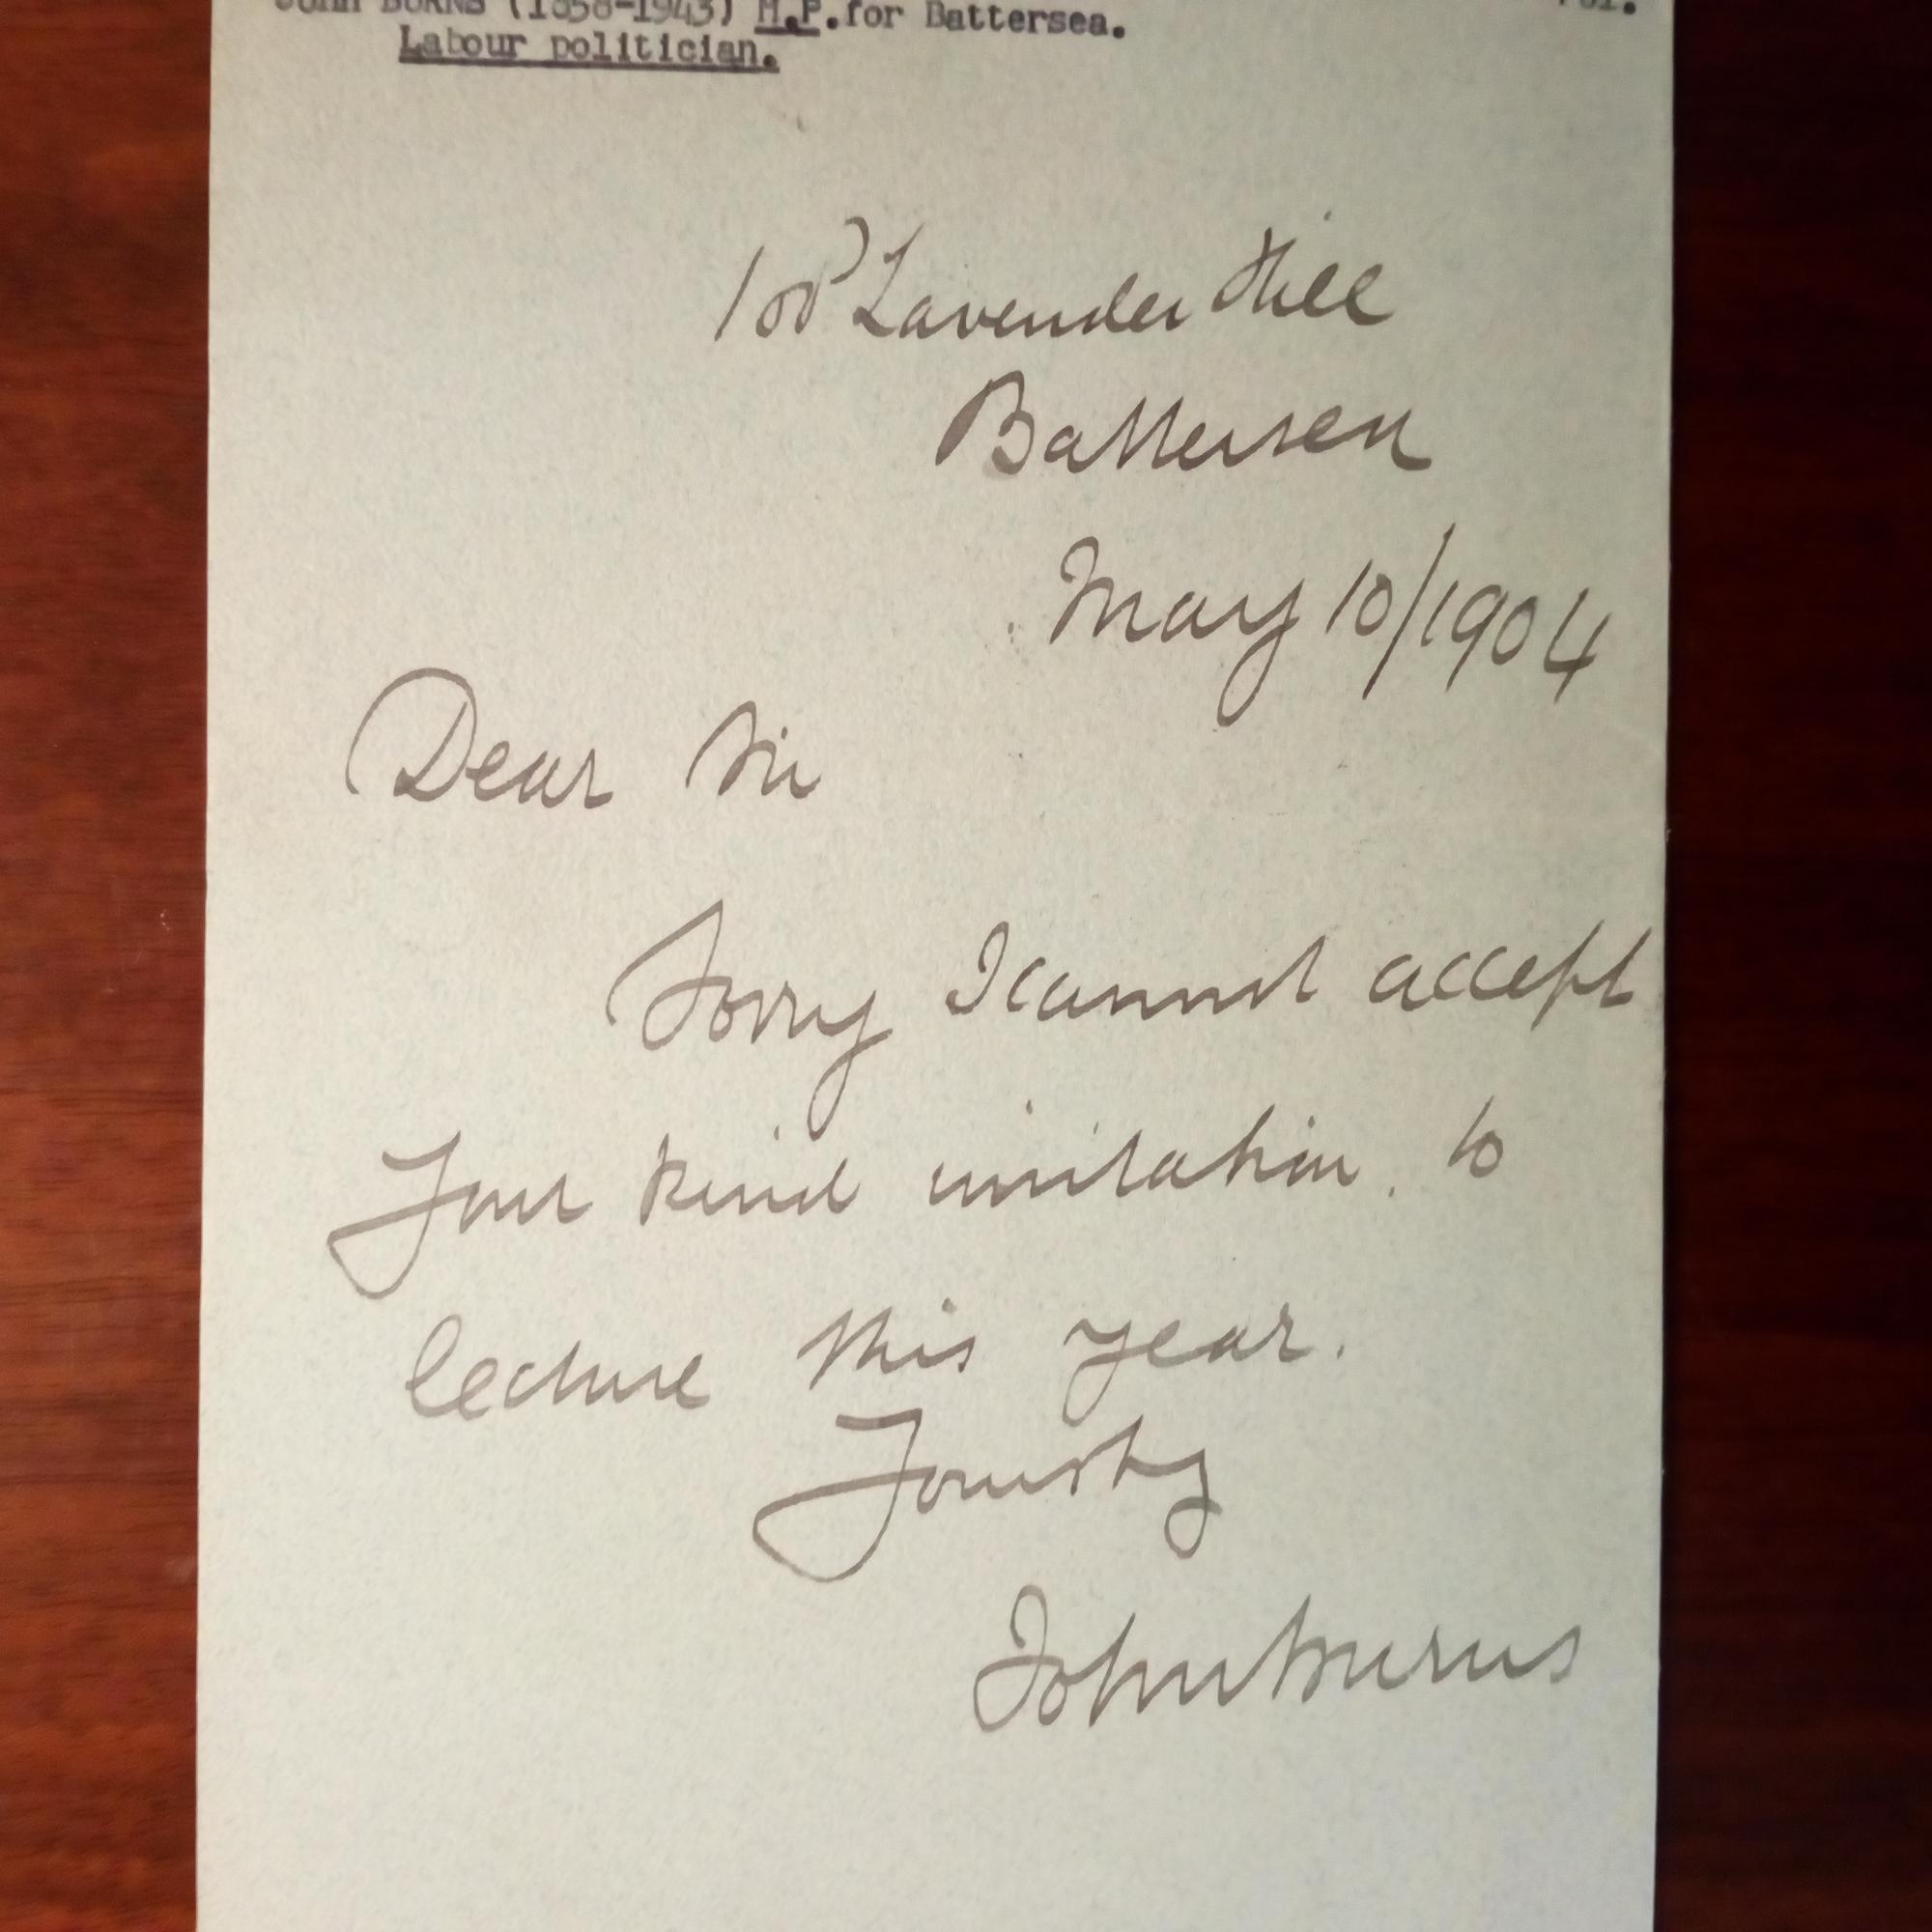 John BURNS (1858-1943) M.P. for Battersea.
Labour politician.
108 Lavender Hill
Battersea
May 10/1904
Dear Sir
Sorry I cannot accept
Your kind invitation. to
lecture this year.
Yours try
John Burns